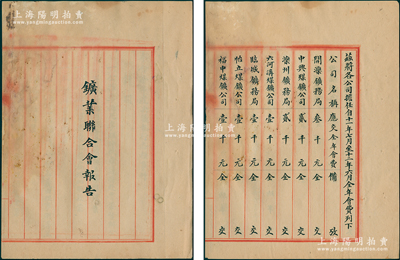 上海陽明拍賣
鑛業聯合會報告
上海陽明拍賣
茲將各公司自十一年七月至十二年六月全年會費列下
公司名稱 應交全年會費 備攷
開灤鑛務局 叁千元全 交
中興煤鑛公司 貳千元全 交
灤州鑛務局 貳千元全 交
六河溝煤鑛公司 壹千元全 交
臨城鑛務局 壹千元全 交
怡立煤鑛公司 壹千元全 交
福中煤鑛公司 壹千元全 交